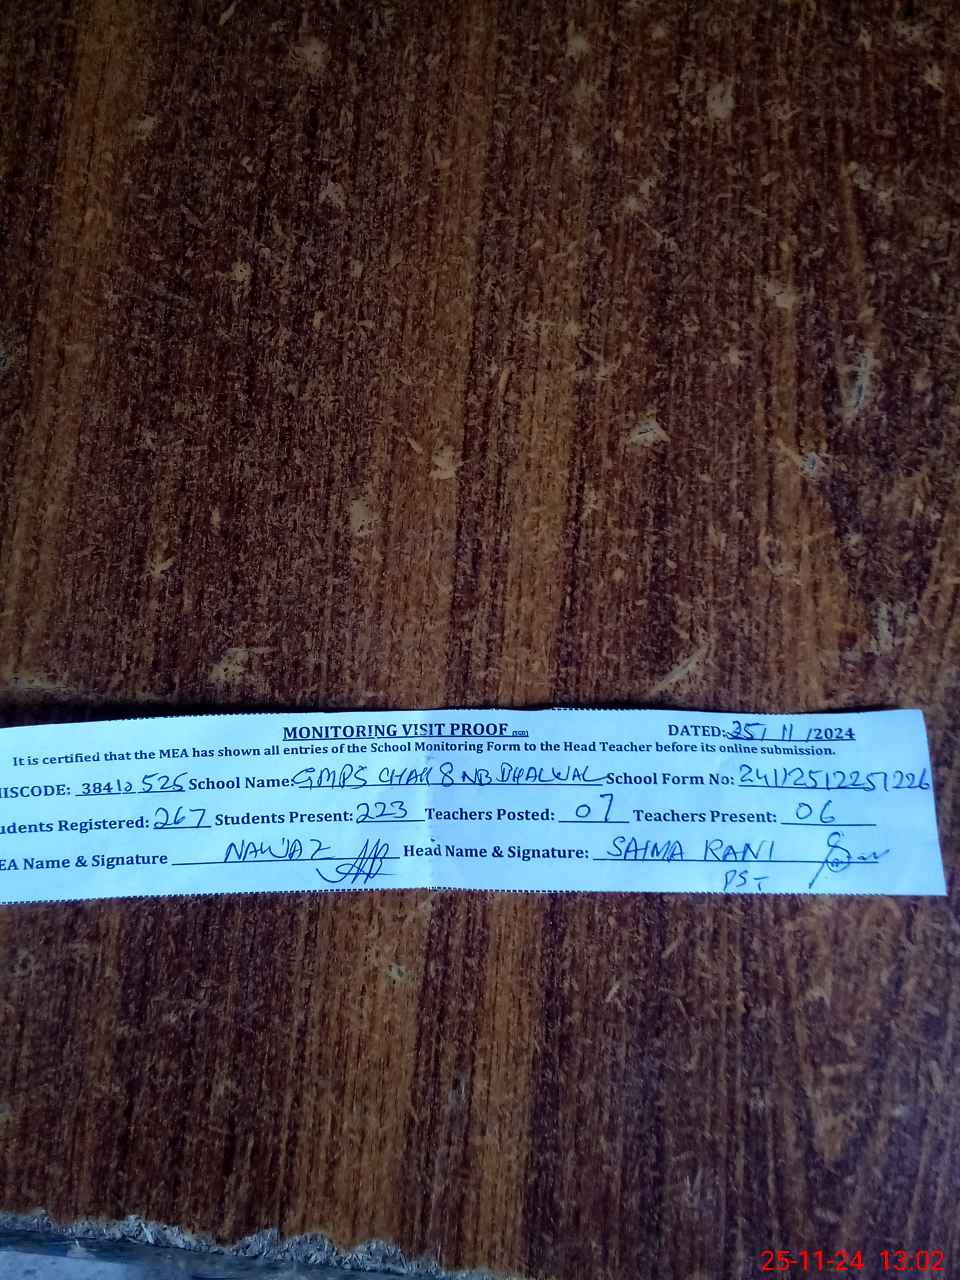 MONITORING VISIT PROOF DATED: 25/11/2024
It is certified that the MEA has shown all entries of the School Monitoring Form to the Head Teacher before its online submission.
ISCODE: 38410 525 School Name: GMPS CHAK 8 NB DHALWAL School Form No: 241125122571226
udents Registered: 267 Students Present: 223 Teachers Posted: 07 Teachers Present: 06
EA Name & Signature NAWAZ Head Name & Signature: SAIMA RANI
PST
25-11-24 13:02